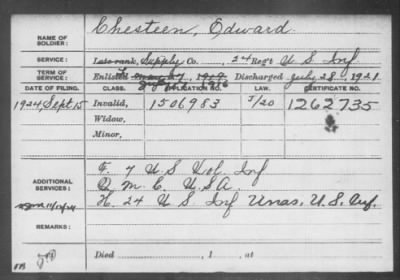 NAME OF SOLDIER: Chesteen, Edward
SERVICE: Late rank, Supply Co., 24 Regt U S Inf
TERM OF SERVICE: Enlisted 1919 Discharged July 28, 1921
DATE OF FILING. CLASS. APPLICATION NO. LAW. CERTIFICATE NO.
1924, Sept 15 Invalid, 1506983 1262735
Widow,
Minor,
F. 7 U S Vol. Inf
ADDITIONAL SERVICES: Q M C, U S A.
H. 24 U S Inf Unas. U.S. Inf.
REMARKS:
Died , 1 , at